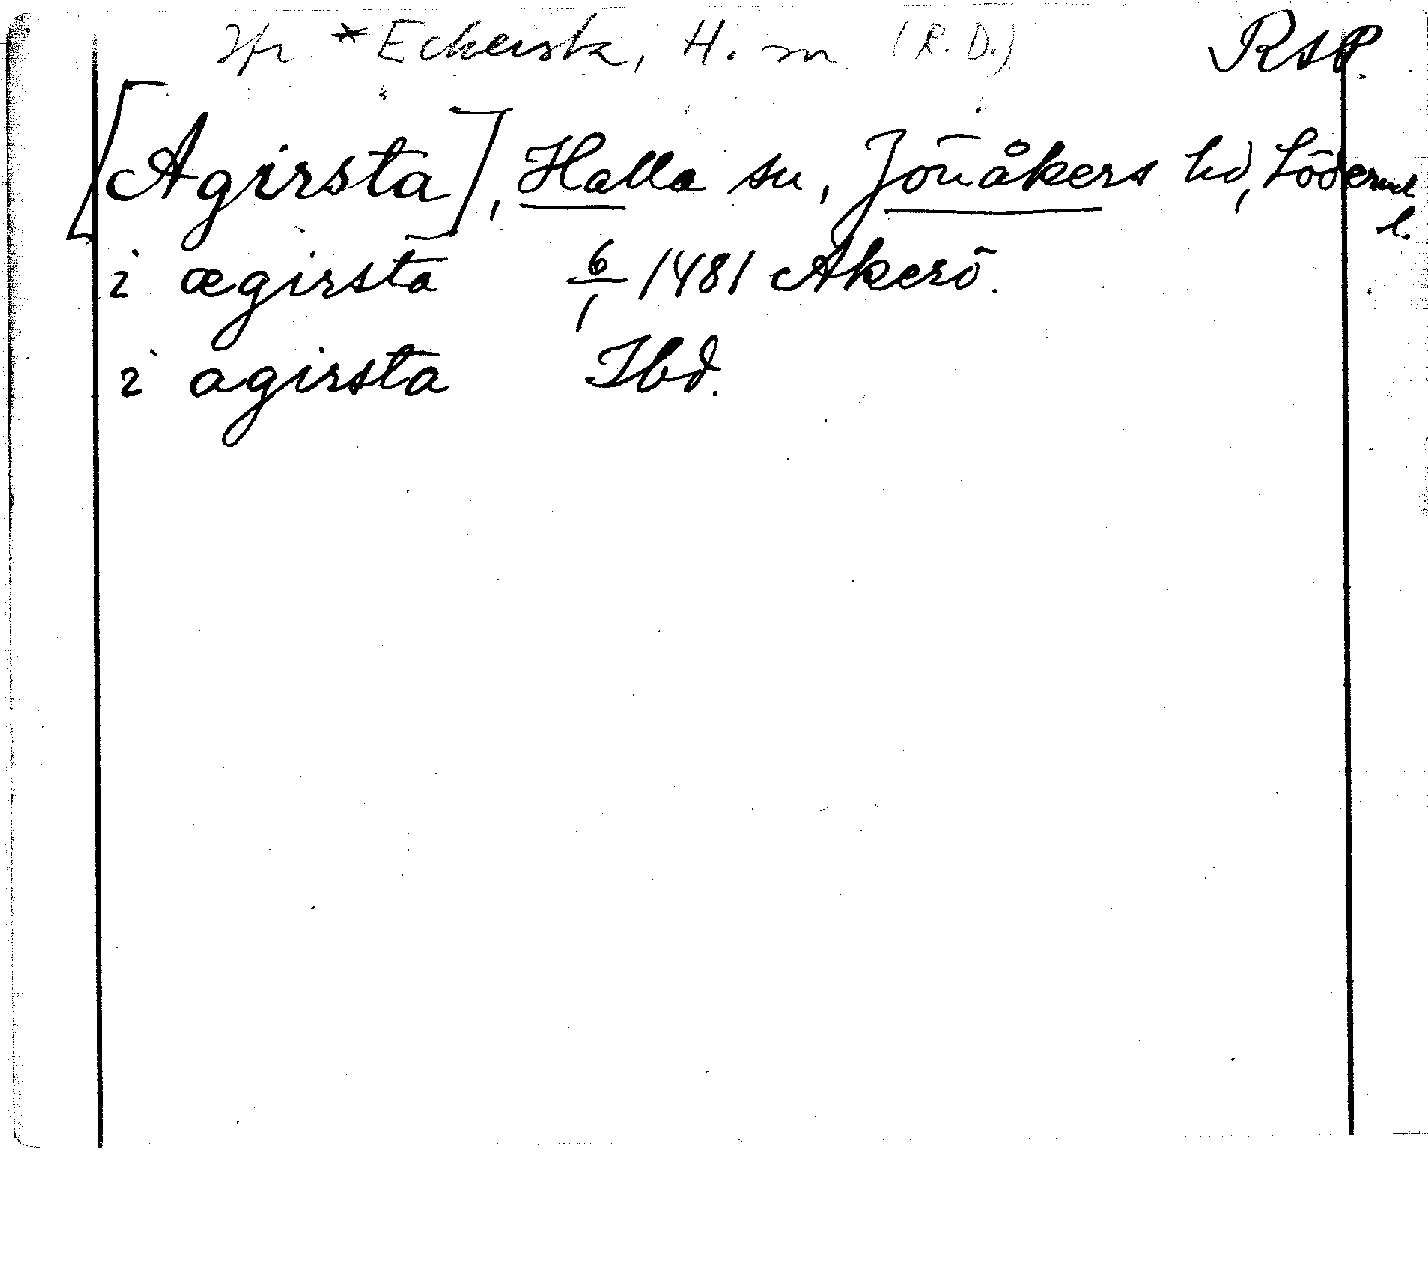 Jfr *Eckersta, H. sn (R.D.) RAP.
[Agirsta], Halla sn, Jönåkers hd, Söderml.
i ægirsta 6/1 1481 Åkerö.
i agirsta Ibd.